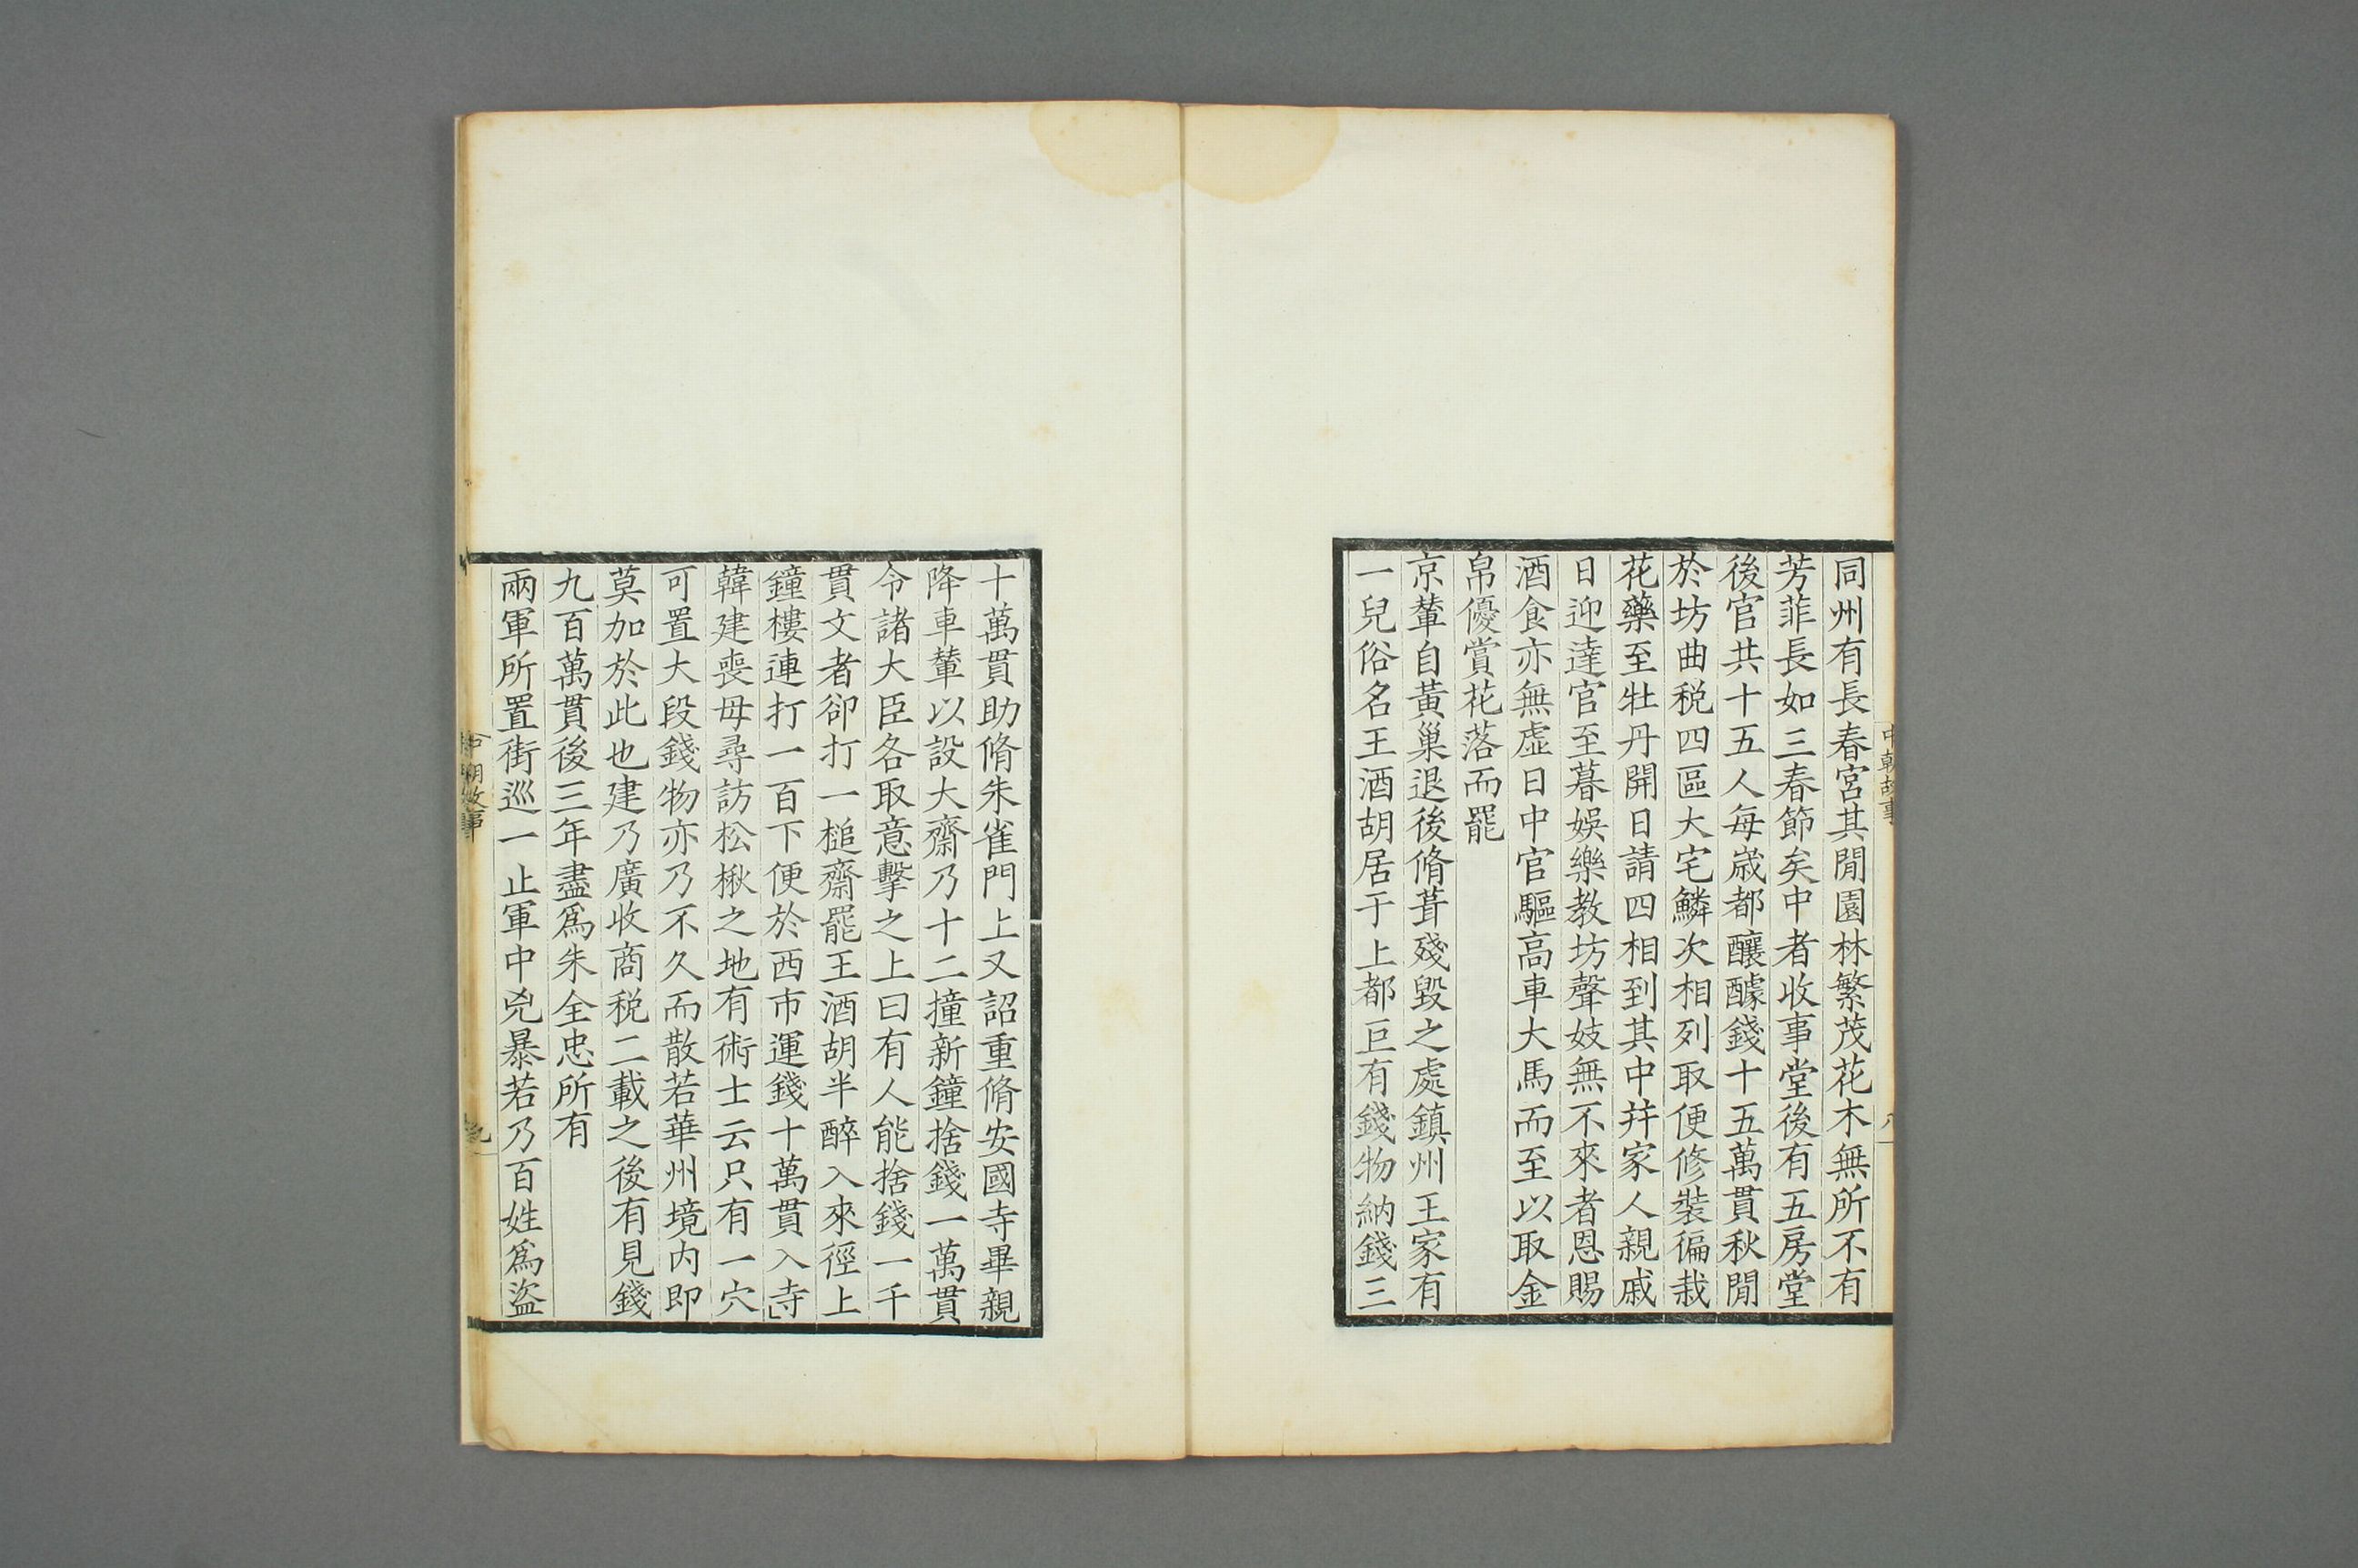 同州有長春宮其閒園林繁茂花木無所不有
芳菲長如三春節矣中者收事堂後有五房堂
後官共十五人每歳都釀醵錢十五萬貫秋閒
於坊曲税四區大宅鱗次相列取便修裝徧栽
花藥至牡丹開日請四相到其中幷家人親戚
日迎達官至暮娛樂教坊聲妓無不來者恩賜
酒食亦無虛日中官驅高車大馬而至以取金
帛優賞花落而罷
京輦自黃巢退後脩葺殘毀之處鎮州王家有
一兒俗名王酒胡居于上都巨有錢物納錢三
中朝故事
八
十萬貫助脩朱雀門上又詔重脩安國寺畢親
降車輦以設大齋乃十二撞新鐘捨錢一萬貫
令諸大臣各取意擊之上曰有人能捨錢一千
貫文者卻打一槌齋罷王酒胡半醉入來徑上
鐘樓連打一百下便於西市運錢十萬貫入寺
韓建喪母尋訪松楸之地有術士云只有一穴
可置大段錢物亦乃不久而散若華州境内即
莫加於此也建乃廣收商税二載之後有見錢
九百萬貫後三年盡爲朱全忠所有
兩軍所置街巡一止軍中兇暴若乃百姓爲盜
中朝故事
九